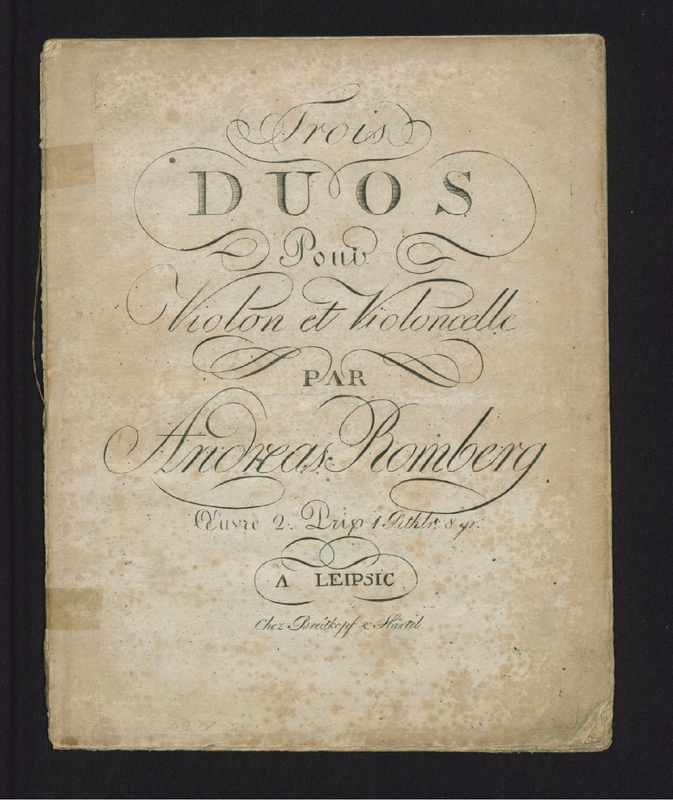 Trois
DUOS
Pour
Violon et Violoncelle
PAR
Andreas Romberg
Œuvre 2. Prix 1 Rthlr. 8 gr.
A LEIPSIC
Chez Breitkopf & Härtel.